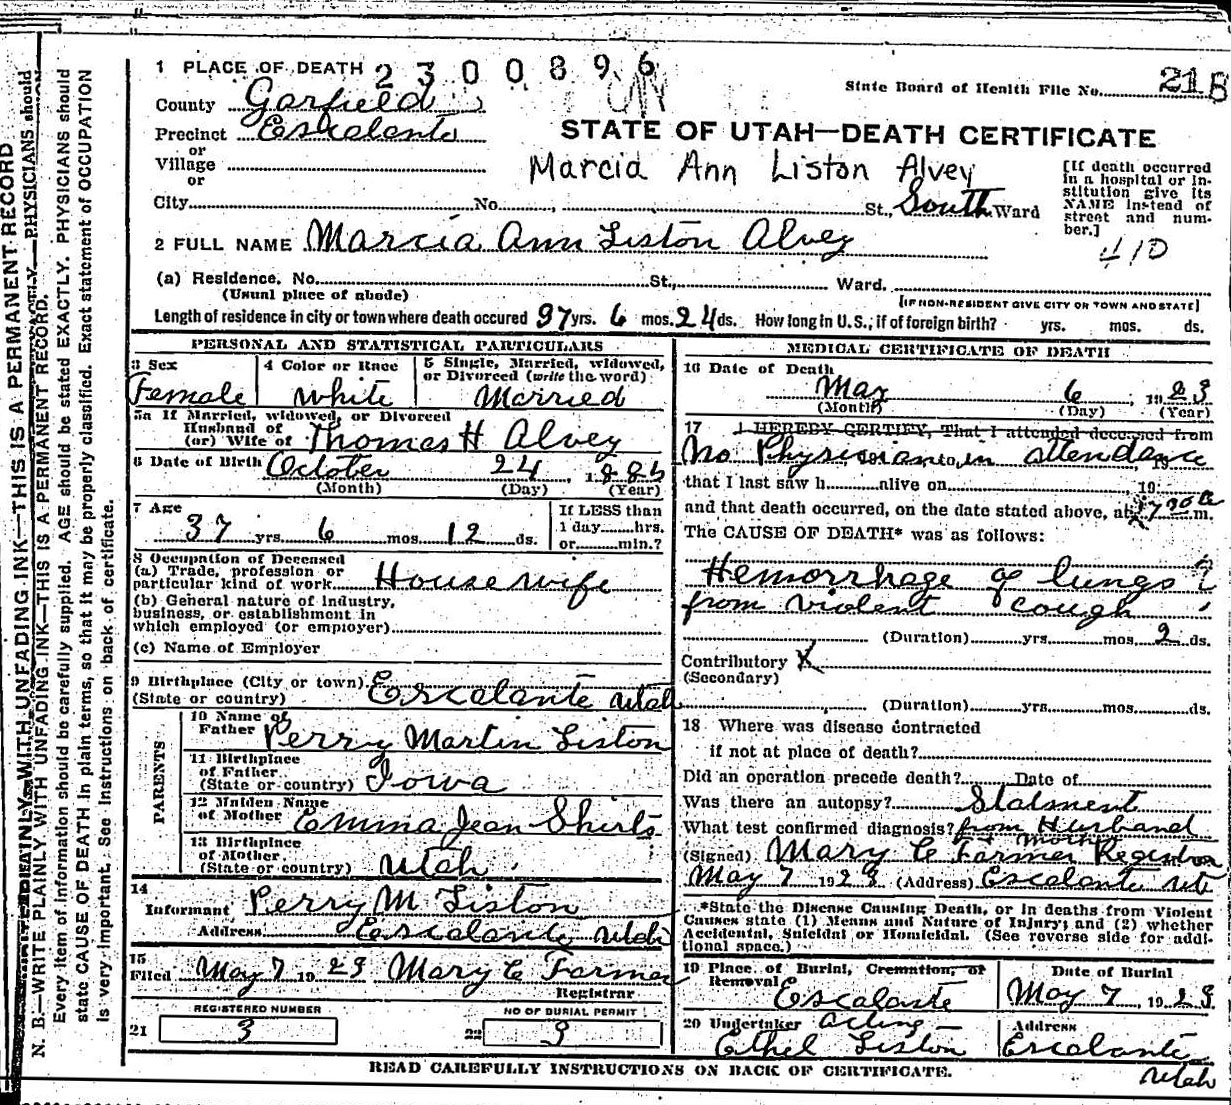 1 PLACE OF DEATH 2300896
State Board of Health File No. 218
County Garfield
Precinct Escalante
STATE OF UTAH—DEATH CERTIFICATE
or
Village
or
Marcia Ann Liston Alvey
[If death occurred in a hospital or institution give its NAME instead of street and number.]
City No. St., South Ward
410
2 FULL NAME Marcia Ann Liston Alvey
(a) Residence. No. St., Ward.
(Usual place of abode)
[IF NON-RESIDENT GIVE CITY OR TOWN AND STATE]
Length of residence in city or town where death occured 37 yrs. 6 mos. 24 ds. How long in U.S., if of foreign birth? yrs. mos. ds.
PERSONAL AND STATISTICAL PARTICULARS
3 Sex
Female
4 Color or Race
White
5 Single, Married, widowed, or Divorced (write the word)
Married
5a If Married, widowed, or Divorced
Husband of
(or) Wife of Thomas H Alvey
6 Date of Birth October 24, 1885
(Month) (Day) (Year)
7 Age
37 yrs. 6 mos. 12 ds.
If LESS than
1 day hrs.
or min.?
8 Occupation of Deceased
(a) Trade, profession or
particular kind of work House wife
(b) General nature of industry,
business, or establishment in
which employed (or employer)
(c) Name of Employer
9 Birthplace (City or town) Escalante Utah
(State or country)
PARENTS
10 Name of
Father Perry Martin Liston
11 Birthplace
of Father
(State or country) Iowa
12 Maiden Name
of Mother Emma Jean Shirts
13 Birthplace
of Mother
(State or country) Utah
14
Informant Perry M Liston
Address Escalante Utah
15
Filed May 7 1923 Mary C Farmer
Registrar
REGISTERED NUMBER
21 3
NO OF BURIAL PERMIT
22 3
MEDICAL CERTIFICATE OF DEATH
16 Date of Death
May 6, 1923
(Month) (Day) (Year)
17 I HEREBY CERTIFY, That I attended deceased from
No Physician in attendance
that I last saw h alive on 19
and that death occurred, on the date stated above, at 7 30 a m.
The CAUSE OF DEATH* was as follows:
Hemorrhage of lungs
from violent cough
(Duration) yrs. mos. 2 ds.
Contributory X
(Secondary)
(Duration) yrs. mos. ds.
18 Where was disease contracted
if not at place of death?
Did an operation precede death? Date of
Was there an autopsy? Statment
What test confirmed diagnosis? from Husband
mother
(Signed) Mary C Farmer Registrar
May 7 1923 (Address) Escalante Ut
*State the Disease Causing Death, or in deaths from Violent
Causes state (1) Means and Nature of Injury; and (2) whether
Accidental, Suicidal or Homicidal. (See reverse side for addi-
tional space.)
19 Place of Burial, Cremation, or
Removal Escalante
Date of Burial
May 7, 1923
20 Undertaker acting
Ethel Liston
Address
Escalante
Utah
READ CAREFULLY INSTRUCTIONS ON BACK OF CERTIFICATE.
N. B.—WRITE PLAINLY WITH UNFADING INK—THIS IS A PERMANENT RECORD.
Every item of information should be carefully supplied. AGE should be stated EXACTLY. PHYSICIANS should
state CAUSE OF DEATH in plain terms, so that it may be properly classified. Exact statement of OCCUPATION
is very important. See instructions on back of certificate.